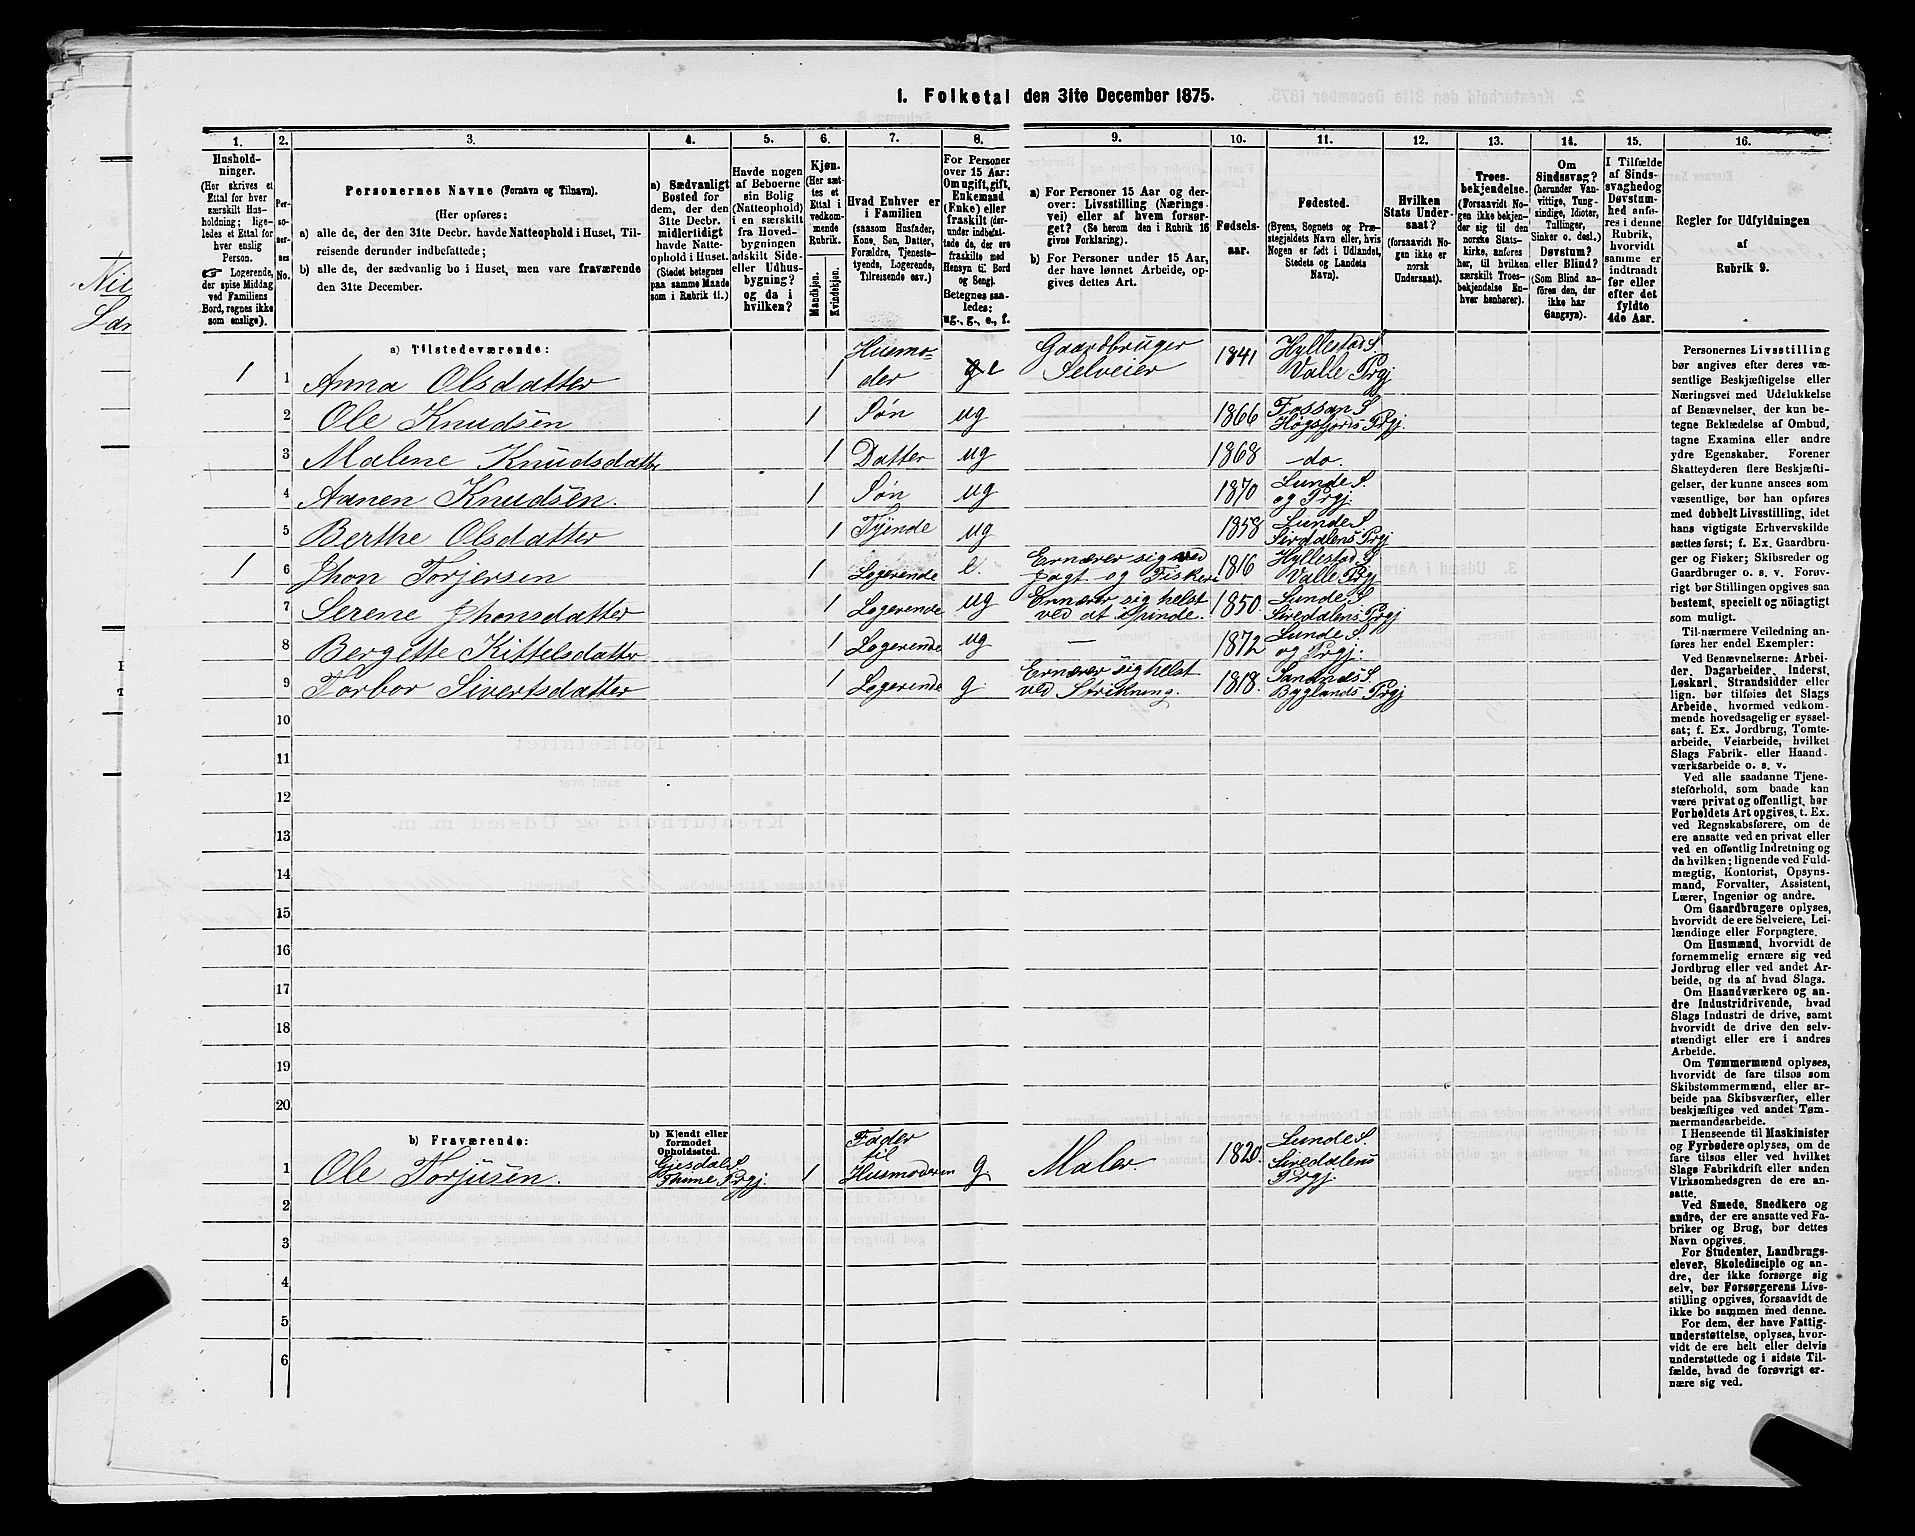 1. Folketal den 31te December 1875.
1. 2. 3. 4. 5. 6. 7. 8. 9. 10. 11. 12. 13. 14. 15. 16.
Hushold-
ninger.
(Her skrives et
Ettal for hver
særskilt Hus-
holdning; lige-
ledes et Ettal for
hver enslig
Person.
☞ Logerende,
der spise Middag
ved Familiens
Bord, regnes ikke
som enslige).
Per-
so-
ner-
nes
No.
Personernes Navne (Fornavn og Tilnavn).
(Her opføres:
a) alle de, der den 31te Decbr. havde Natteophold i Huset, Til-
reisende derunder indbefattede;
b) alle de, der sædvanlig bo i Huset, men vare fraværende
den 31te December.
a) Sædvanligt
Bosted for
dem, der den
31te Decbr.
midlertidigt
havde Natte-
ophold i Huset.
(Stedet betegnes
paa samme Maade
som i Rubrik 11.)
Havde nogen
af Beboerne
sin Bolig
(Natteophold)
i en særskilt
fra Hoved-
bygningen
adskilt Side-
eller Udhus-
bygning?
og da i
hvilken?
Kjøn.
(Her sæt-
tes et
Ettal i
vedkom-
mende
Rubrik.
Mandkjøn.
Kvindekjøn.
Hvad Enhver er
i Familien
(saasom Husfader,
Kone, Søn, Datter,
Forældre, Tjeneste-
tyende, Logerende,
Tilreisende osv.)
For Personer
over 15 Aar:
Om ugift, gift,
Enkemand
(Enke) eller
fraskilt (der-
under indbefat-
tede de, der ere
fraskilte med
Hensyn til Bord
og Seng).
Betegnes saa-
ledes:
ug., g., e., f.
a) For Personer 15 Aar og der-
over: Livsstilling (Nærings-
vei) eller af hvem forsør-
get? (Se herom den i Rubrik 16
givne Forklaring).
b) For Personer under 15 Aar,
der have lønnet Arbeide, op-
gives dettes Art.
Fødsels-
aar.
Fødested.
(Byens, Sognets og Præ-
stegjeldets Navn eller, hvis
Nogen er født i Udlandet,
Stedets og Landets
Navn).
Hvilken
Stats Under-
saat?
(forsaavidt No-
gen ikke er
norsk
Undersaat).
Troes-
bekjendelse.
(Forsaavidt No-
gen ikke bekjen-
der sig til den
norske Stats-
kirke, anføres
her, til hvilken
særskilt Troes-
bekjendelse En-
hver henhører).
Om
Sindssvag?
(herunder Van-
vittige, Tung-
sindige, Idioter,
Tullinger,
Sinker o. desl.)
Døvstum?
eller Blind?
(Som Blind an-
føres den, der
ikke har
Gangsyn).
I Tilfælde
af Sinds-
svaghed og
Døvstum-
hed anfø-
res i denne
Rubrik,
hvorvidt
samme er
indtraadt
før eller
efter det
fyldte
4de Aar.
Regler for Udfyldningen
af
Rubrik 9.
a) Tilstedeværende:
1 1 Anna Olsdatter 1 Husmo-
der e Gaardbruger
Selveier 1841 Hyllestad S
Valle Prgj
2 Ole Knudsen 1 Søn ug 1866 Fossan S
Høgsfjords Prgj.
3 Malene Knudsdatter 1 Datter ug 1868 do.
4 Aanen Knudsen. 1 Søn ug 1870 Lunde S.
og Prgj.
5 Berthe Olsdatter 1 Tyende ug 1858 Lunde S
Sirdalens Prgj
1 6 Jhon Torjersen 1 Logerende e. Ernærer sig ved
Jagt og Fiskeri 1816 Hyllestad S
Valle Prgj
7 Serene Jhonsdatter 1 Logerende ug Ernærer sig helst
ved at Spinde. 1850. Lunde S
Siredalens Prgj
8 Bergette Kittelsdatter 1 Logerende ug — 1872 Lunde S
og Prgj.
9 Torbor Sivertsdatter 1 Logerende g. Ernærer sig helst
ved Strikning. 1818. Sandnæs S
Byglands Prgj
10
11
12
13
14
15
16
17
18
19
20
b) Fraværende:
b) Kjendt eller
formodet
Opholdssted.
1 Ole Torjusen. Giesdal S
Thime Prgj. 1 Fader
til
Husmoderen g Maler 1820. Lunde S.
Siredalens
Prgj.
2
3
4
5
6
Personernes Livsstilling
bør angives efter deres væ-
sentlige Beskjæftigelse eller
Næringsvei med Udelukkelse
af Benævnelser, der kun be-
tegne Beklædelse af Ombud,
tagne Examina eller andre
ydre Egenskaber. Forener
Skatteyderen flere Beskjæfti-
gelser, der kunne ansees som
væsentlige, bør han opføres
med dobbelt Livsstilling, idet
hans vigtigste Erhvervskilde
sættes først; f. Ex. Gaardbru-
ger og Fisker; Skibsreder og
Gaardbruger o. s. v. Forøv-
rigt bør Stillingen opgives saa
bestemt, specielt og nöiagtigt
som muligt.
Til nærmere Veiledning an-
føres her endel Exempler:
Ved Benævnelserne: Arbei-
der, Dagarbeider, Inderst,
Løskarl, Strandsidder eller
lign. bør tilføies det Slags
Arbeide, hvormed vedkom-
mende hovedsagelig er syssel-
sat; f. Ex. Jordbrug, Tomte-
arbeide, Veiarbeide, hvilket
Slags Fabrik- eller Haand-
værksarbeide o. s. v.
Ved alle saadanne Tjene-
steforhold, som baade kan
være privat og offentligt, bør
Forholdets Art opgives, t. Ex.
ved Regnskabsførere, om de
ere ansatte ved en privat eller
ved en offentlig Indretning og
da hvilken; lignende ved Fuld-
mægtig, Kontorist, Opsyns-
mand, Forvalter, Assistent,
Lærer, Ingeniør og andre.
Om Gaardbrugere oplyses,
hvorvidt de ere Selveiere, Lei-
lændinge eller Forpagtere.
Om Husmænd, hvorvidt de
fornemmelig ernære sig ved
Jordbrug eller ved andet Ar-
beide, og da af hvad Slags.
Om Haandværkere og an-
dre Industridrivende, hvad
Slags Industri de drive, samt
hvorvidt de drive den selv-
stændigt eller ere i andres
Arbeide.
Om Tømmermænd oplyses,
hvorvidt de fare tilsøs som
Skibstømmermænd, eller ar-
beide paa Skibsværfter, eller
beskjæftiges ved andet Tøm-
mermandsarbeide.
I Henseende til Maskinister
og Fyrbødere oplyses, om de
fare tilsøs eller ved hvilket
Slags Fabrikdrift eller anden
Virksomhedsgren de ere an-
satte.
Ved Smede, Snedkere og
andre, der ere ansatte ved Fa-
briker og Brug, bør dettes
Navn opgives.
For Studenter, Landbrugs-
elever, Skoledisciple og an-
dre, der ikke forsørge sig
selv, bør Forsørgerens Livs-
stilling opgives, forsaavidt de
ikke bo sammen med denne.
For dem, der have Fattig-
understøttelse, oplyses, hvor-
vidt de ere helt eller delvis
understøttede og i sidste Til-
fælde, hvad de forøvrigt er-
nære sig ved.